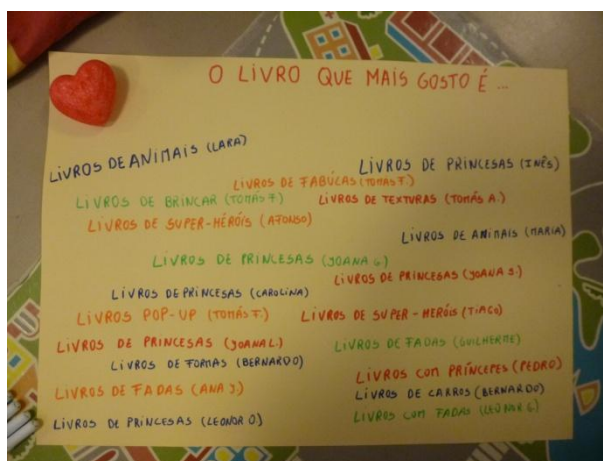 O LIVRO QUE MAIS GOSTO É ...
LIVROS DE ANIMAIS (LARA)
LIVROS DE PRINCESAS (INÊS)
LIVROS DE FABÚLAS (TOMÁS F.)
LIVROS DE BRINCAR (TOMÁS F.)
LIVROS DE TEXTURAS (TOMÁS A.)
LIVROS DE SUPER-HÉRÓIS (AFONSO)
LIVROS DE ANIMAIS (MARIA)
LIVROS DE PRINCESAS (JOANA G.)
LIVROS DE PRINCESAS (JOANA S.)
LIVROS DE PRINCESAS (CAROLINA)
LIVROS POP-UP (TOMÁS F.)
LIVROS DE SUPER-HERÓIS (TIAGO)
LIVROS DE PRINCESAS (JOANA L.)
LIVROS DE FADAS (GUILHERME)
LIVROS DE FORMAS (BERNARDO)
LIVROS COM PRÍNCEPES (PEDRO)
LIVROS DE FADAS (ANA J.)
LIVROS DE CARROS (BERNARDO)
LIVROS COM FADAS (LEONOR G.)
LIVROS DE PRINCESAS (LEONOR O.)